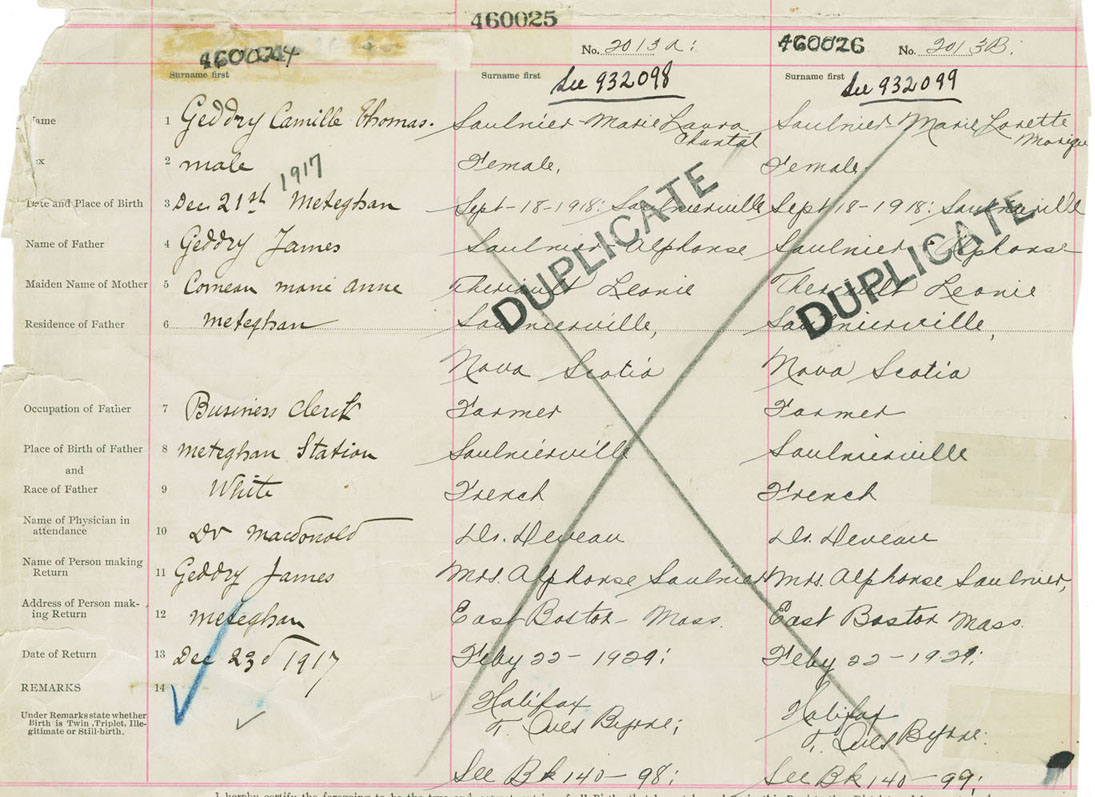 460025
460024
No. 2013A:
460026
No. 2013B:
Surname first
Surname first
See 932098
Surname first
See 932099
Name 1 Geddry Camille Thomas. Saulnier-Marie Laura Chantal Saulnier-Marie Lorette Monique
Sex 2 male Female, Female,
1917
Date and Place of Birth 3 Dec. 21st Meteghan Sept-18-1918: Saulnierville Sept 18-1918: Saulnierville
Name of Father 4 Geddry James Saulnier Alphonse Saulnier Alphonse
Maiden Name of Mother 5 Comeau marie Anne Theriault Leonie Theriault Leonie
Residence of Father 6 meteghan Saulnierville, Saulnierville,
Nova Scotia Nova Scotia
DUPLICATE
DUPLICATE
Occupation of Father 7 Business Clerk Farmer Farmer
Place of Birth of Father 8 meteghan Station Saulnierville Saulnierville
and
Race of Father 9 White French French
Name of Physician in
attendance 10 Dr macdonald Dr. Deveau Dr. Deveau
Name of Person making
Return 11 Geddry James Mrs. Alphonse Saulnier Mrs. Alphonse Saulnier,
Address of Person mak-
ing Return 12 meteghan East Boston-Mass. East Boston Mass.
Date of Return 13 Dec 23d 1917 Feby 22-1929: Feby 22-1929:
REMARKS 14
Under Remarks state whether
Birth is Twin, Triplet, Ille-
gitimate or Still-birth.
Halifax Halifax
Byrne; Byrne.
See Bk 140-98: See Bk 140-99:
I hereby certify the foregoing to be the true and correct